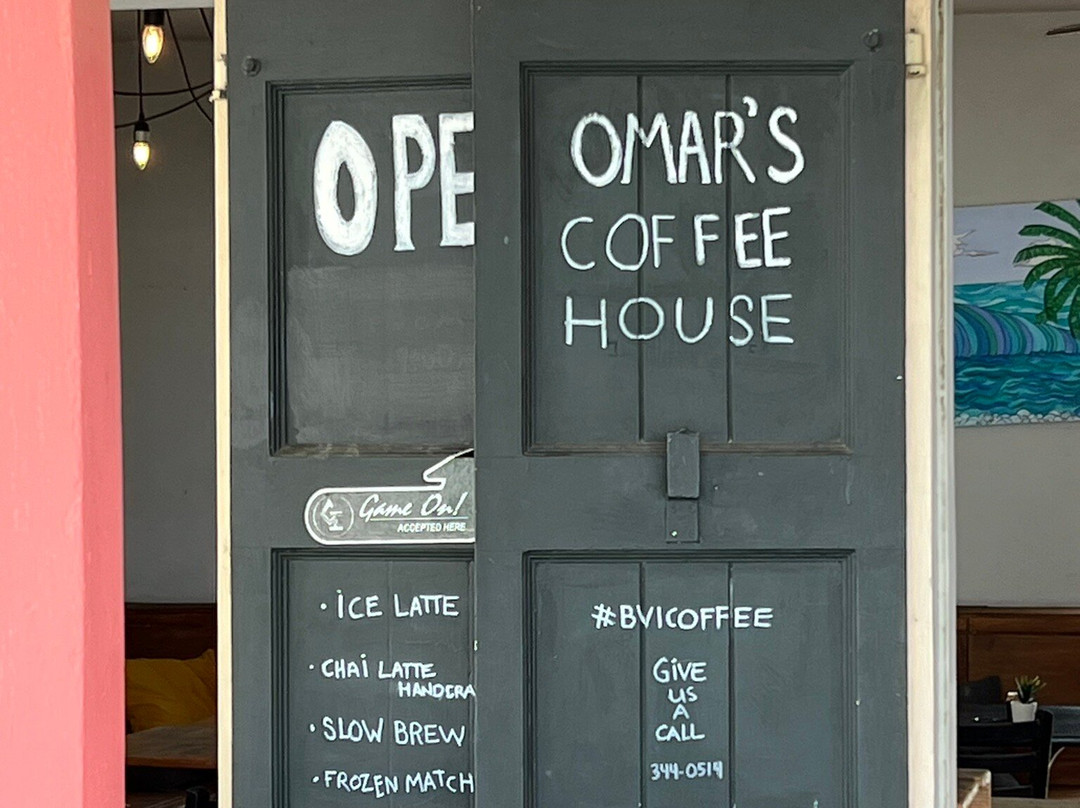 OPE
Game On!
ACCEPTED HERE
· ICE LATTE
· CHAI LATTE
HANDCRA
· SLOW BREW
· FROZEN MATCH
OMAR'S
COFFEE
HOUSE
#BVICOFFEE
GIVE
US
A
CALL
344-0514